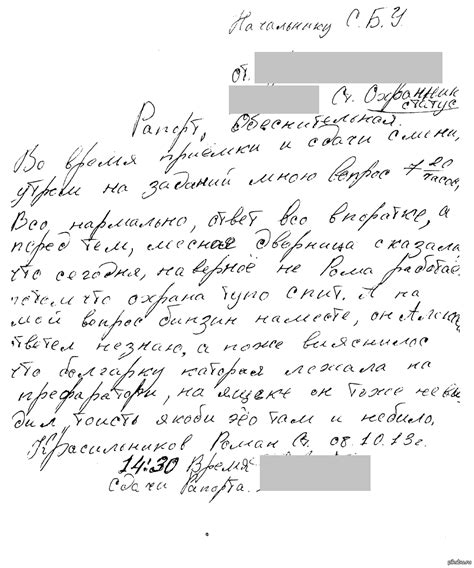 Начальнику С.Б.У.
от.
Ст. Охранник
статус
Рапорт, Обеснительная.
Во время приёмки и сдачи смени,
утрем на заданий мною вепрос 7 20
часов,
Все, нармально, ответ всо впоратке, а
перед тем, месная дворница сказала
что сегодня, наверное не Рома работае,
потом что охрана тупо спит. А на
мой вопрос бинзин наместе, он
ответел незнаю, а поже вияснилос
что болгарку которая лежала на
на ящеке он тоже невы-
дил, тоисть якоби его там и небило.
Красильников Роман Ст. 08.10.13г.
14:30 Время
Сдачи Рапорта.
pikabu.ru